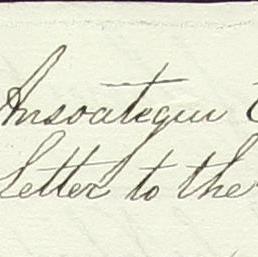 Ansoategui
Letter to the